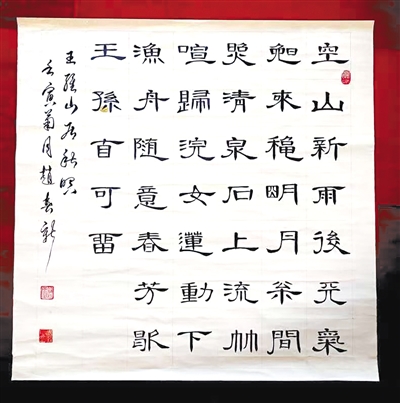 空山新雨後天氣
晚來穐明月枀間
照清泉石上流竹
喧歸浣女蓮動下
漁舟隨意春芳歇
王孫自可留
王維山居秋暝
壬寅菊月趙春新